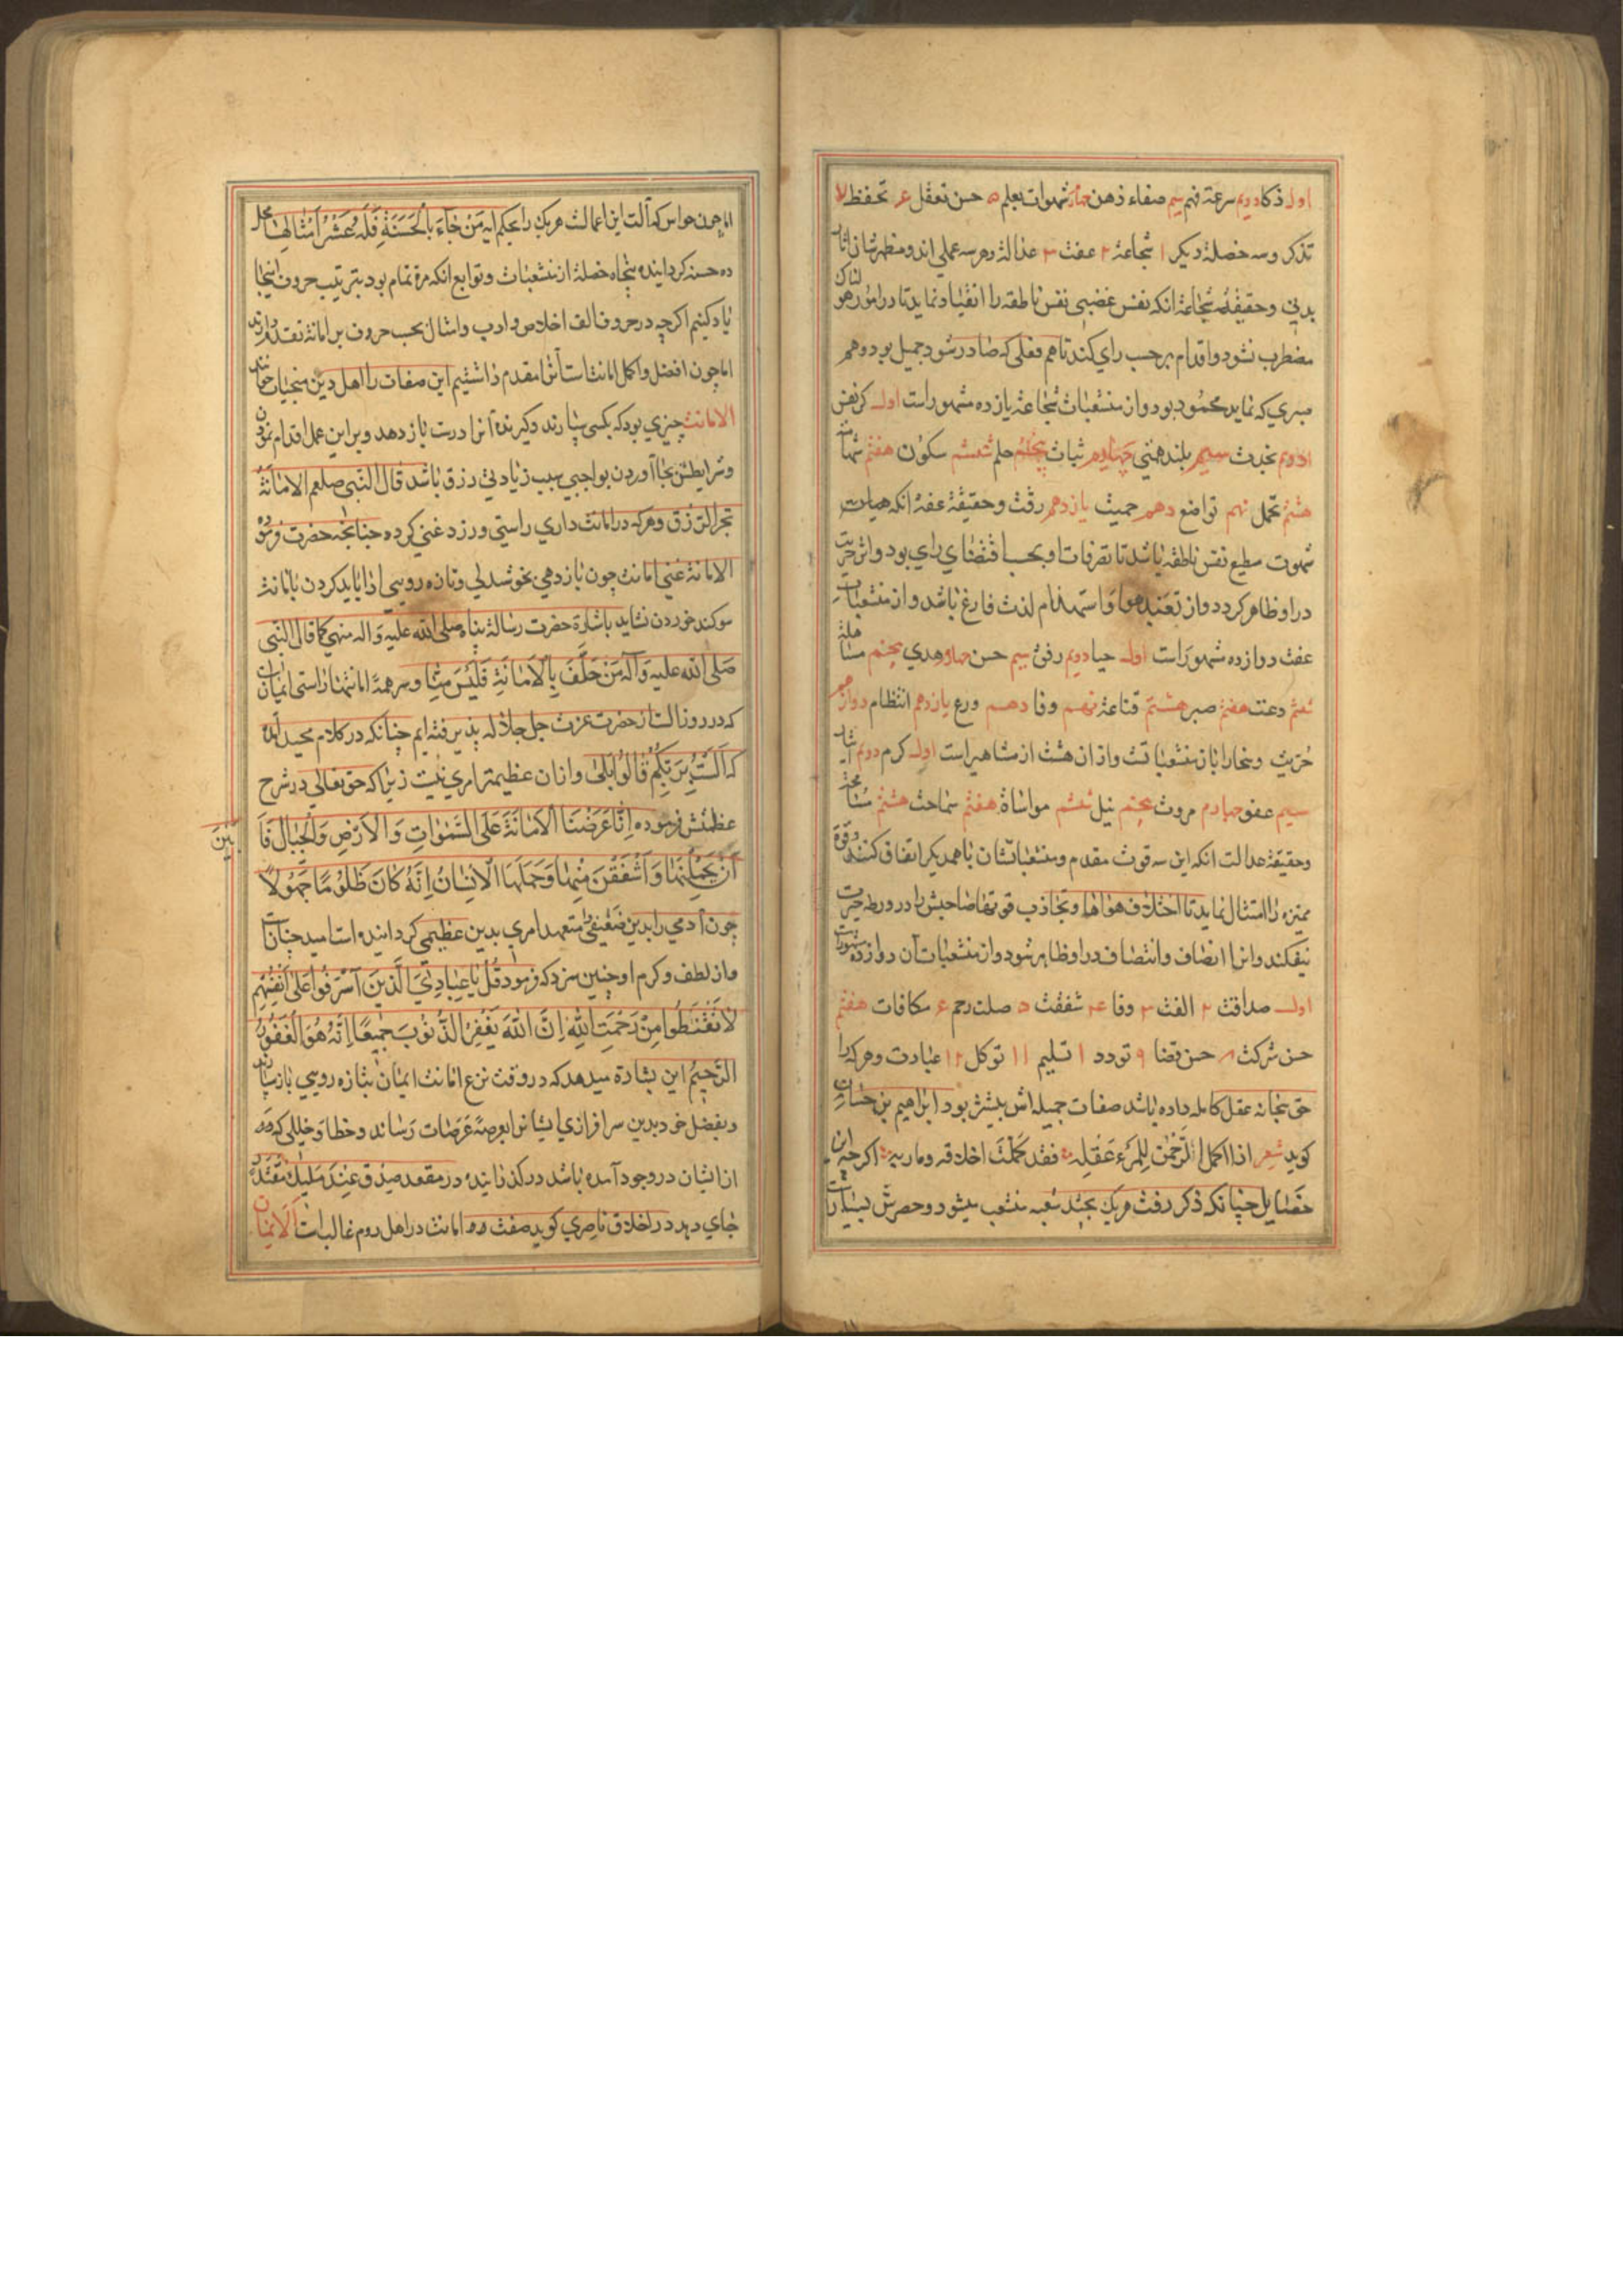 اول ذكا دويم سرعة فهم سيم صفاء ذهن چهار سهولت تعلم ۵ حسن تعقل ع تحفظ ۷
تذكر وسه خصلة ديكر ۱ شجاعة ۲ عفت ۳ عدالة وهر سه عملي اند ومظهرشان
بدني وحقيقة شجاعة انكه نفس غضبي نفس ناطقه را انقياد نمايد تا در امور هولناك
مضطرب نشود واقدام برحسب راي كند تا هم فعلي كه صادر شود جميل بود وهم
صبري كه نمايد محمود بود واز منشعبات شجاعة يازده مشهور است اول كبر نفس
دويم نجدت سيم بلند همتي چهارم ثبات پنجم حلم ششم سكون هفتم شهامة
هشتم تحمل نهم تواضع دهم حميت يازدهم رقت وحقيقة عفة انكه
شهوت مطيع نفس ناطقه باشد تا تصرفات او بحسب اقتضاي راي بود واثر حريت
در او ظاهر كردد واز تعبد هوا واستخدام لذت فارغ باشد واز منشعبات
عفت دوازده مشهور است اول حيا دويم رفق سيم حسن چهار هدي پنجم مسالمة
ششم دعت هفتم صبر هشتم قناعة نهم وقار دهم ورع يازدهم انتظام دوازدهم
حريت وسخا را باز منشعبات است واز ان هشت از مشاهير است اول كرم دويم ايثار
سيم عفو چهارم مروت پنجم نيل ششم مواساة هفتم سماحت هشتم مسامحة
وحقيقة عدالت انكه اين سه قوت مقدم ومنشعبات شان با همديكر اتفاق كنند وقوة
مميزه را امتثال نمايد تا اختلاف هواها وتجاذب قوتها صاحبش را در ورطه حيرت
نيفكند واثر انصاف وانتصاف در او ظاهر شود واز منشعبات آن دوازده مشهورست
اول صداقت ۲ الفت ۳ وفا ع شفقت ۵ صلت رحم ۶ مكافات هفتم
حسن شركت ۸ حسن قضا ۹ تودد ۱۰ تسليم ۱۱ توكل ۱۲ عبادت وهركه را
حق سبحانه عقل كامله داده باشد صفات جميله اش بيشتر بود ابراهيم بن حسان
كويد شعر اذا اكمل الرحمن للمرء عقله فقد كملت اخلاقه ومآربه اكرچه اين
خصايل چنانكه ذكر رفت هريك بچند شعبه منشعب ميشود وحصرش بسيارست
اما چون حواس كه آلت اين اعمالست هريك را بحكم ايه مَنْ جَاءَ بِالْحَسَنَةِ فَلَهُ عَشْرُ اَمْثَالِهَا محل
ده حسنه كردانيده پنجاه خصلة از منشعبات وتوابع انكه مرة تمام بود بترتيب حروف اينجا
ياد كنيم اكرچه در حروف الف اخلاص وادب وامثال بحسب حروف بر امانة تقدم دارند
اما چون افضل واكمل امانتست آنرا مقدم داشتيم اين صفات را اهل دين منجيات خوانند
الامانت چيزي بود كه بكسي سپارند وكيرنده آنرا درست باز دهد وبر اين عمل اقدام نمودن
وشرايطش بجا آوردن بواجبي سبب زيادتي رزق باشد قال النبي صلعم الامانة
تجر الرزق وهركه در امانت داري راستي ورزد غني كردد چنانچه حضرت فرمود
الامانة غني امانت چون باز دهي بخوشدلي وتازه رويي ادا بايد كردن بامانت
سوكند خوردن نشايد باشارة حضرت رسالة پناه صلى الله عليه واله منهي كما قال النبي
صلى الله عليه وآله مَنْ حَلَفَ بِالْاَمَانَةِ فَلَيْسَ مِنَّا وسر همة امانتها راستي ايمان
كه در روز الست از حضرت عزت جل جلاله پذيرفته ايم چنانكه در كلام مجيد آمده
كه اَلَسْتُ بِرَبِّكُمْ قَالُوا بَلٰى واز ان عظيمتر امري نيست زيرا كه حق تعالي در شرح
عظمتش فرموده اِنَّا عَرَضْنَا الْاَمَانَةَ عَلَى السَّمٰوَاتِ وَالْاَرْضِ وَالْجِبَالِ فَاَ
بَيْنَ
اَنْ يَحْمِلْنَهَا وَاَشْفَقْنَ مِنْهَا وَحَمَلَهَا الْاِنْسَانُ اِنَّهُ كَانَ ظَلُومًا جَهُولًا
چون آدمي را بدين ضعيفي متعهد امري بدين عظيمي كردانيده است اميد چنانست
واز لطف وكرم او چنين سزد كه فرمود قُلْ يَا عِبَادِيَ الَّذِينَ اَسْرَفُوا عَلٰى اَنْفُسِهِمْ
لَا تَقْنَطُوا مِنْ رَحْمَتِ اللهِ اِنَّ اللهَ يَغْفِرُ الذُّنُوبَ جَمِيعًا اِنَّهُ هُوَ الْغَفُورُ
الرَّحِيمُ اين بشارة ميدهد كه در وقت نزع امانت ايمان بتازه رويي باز سپارند
وبفضل خود بدين سرافرازي ايشانرا بعرصة عرصات رساند وخطا وخللي كه
از ايشان در وجود آمده باشد در كذرانيده در مقعد صدق عِنْدَ مَلِيكٍ مُقْتَدِرٍ
جاي دهد در اخلاق ناصري كويد صفت امانت در اهل روم غالب است الايمان